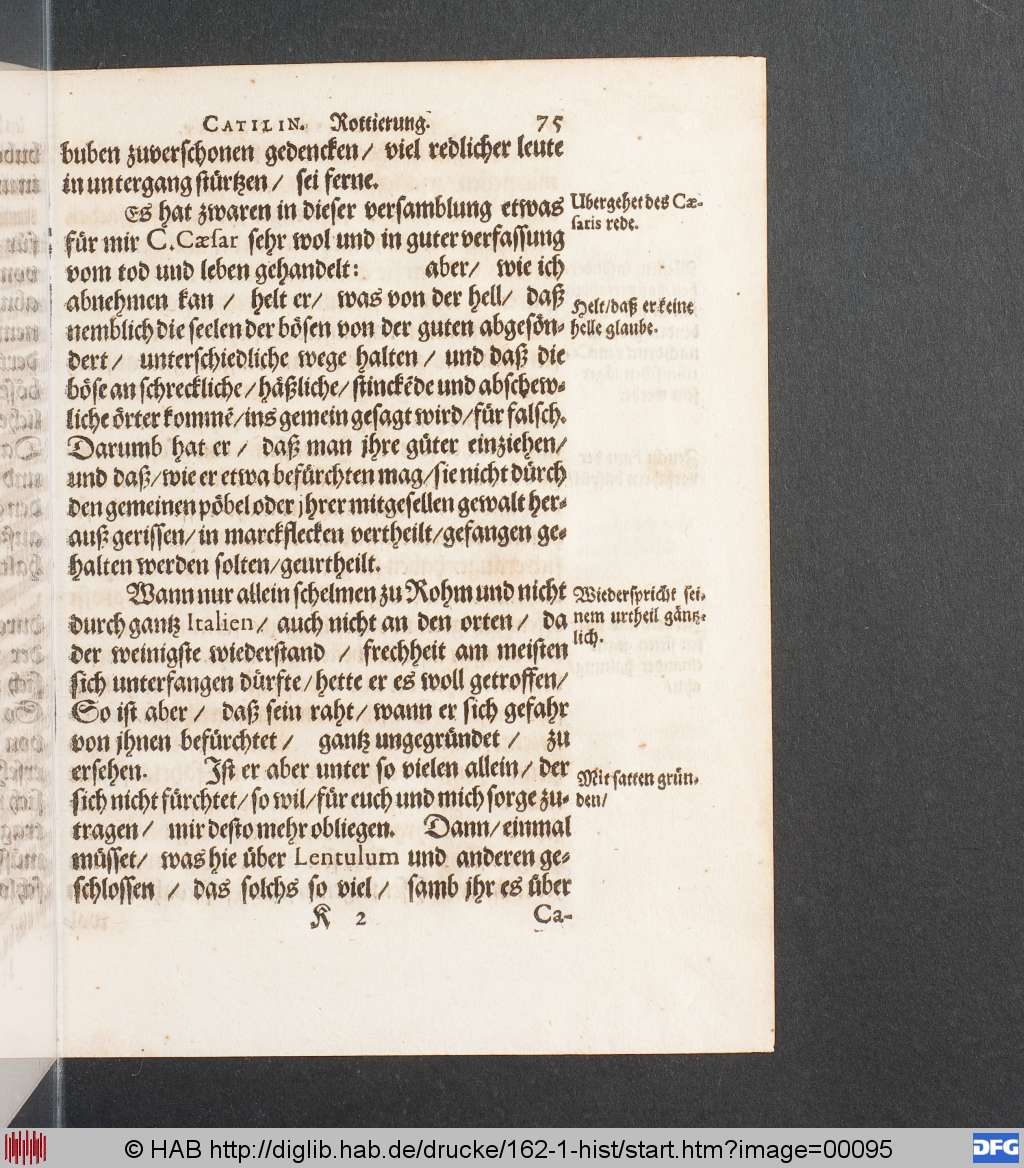 CATILIN. Rottierung. 75
buben zuverschonen gedencken/ viel redlicher leute
in untergang stürtzen/ sei ferne.
Es hat zwaren in dieser versamblung etwas
für mir C. Cæsar sehr wol und in guter verfassung
vom tod und leben gehandelt: aber/ wie ich
abnehmen kan / helt er/ was von der hell/ daß
nemblich die seelen der bösen von der guten abgesön-
dert/ unterschiedliche wege halten/ und daß die
böse an schreckliche/ häßliche/ stinckēde und abschew-
liche örter kommē/ ins gemein gesagt wird/ für falsch.
Darumb hat er / daß man jhre güter einziehen/
und daß/ wie er etwa befürchten mag/ sie nicht dürch
den gemeinen pöbel oder jhrer mitgesellen gewalt her-
auß gerissen/ in marckflecken vertheilt/ gefangen ge-
halten werden solten/ geurtheilt.
Wann nur allein schelmen zu Rohm und nicht
durch gantz Italien/ auch nicht an den orten/ da
der weinigste wiederstand / frechheit am meisten
sich unterfangen dürfte/ hette er es woll getroffen/
So ist aber / daß sein raht/ wann er sich gefahr
von jhnen befürchtet/ gantz ungegründet / zu
ersehen. Jst er aber unter so vielen allein/ der
sich nicht fürchtet/ so wil/ für euch und mich sorge zu-
tragen/ mir desto mehr obliegen. Dann/ einmal
müsset/ was hie über Lentulum und anderen ge-
schlossen / das solchs so viel/ samb jhr es über
K 2 Ca-
Ubergehet des Cæ-
saris rede.
Helt/ daß er keine
helle glaube.
Wiederspricht sei-
nem urtheil gäntz-
lich.
Mit satten grün-
den/
© HAB http://diglib.hab.de/drucke/162-1-hist/start.htm?image=00095
DFG